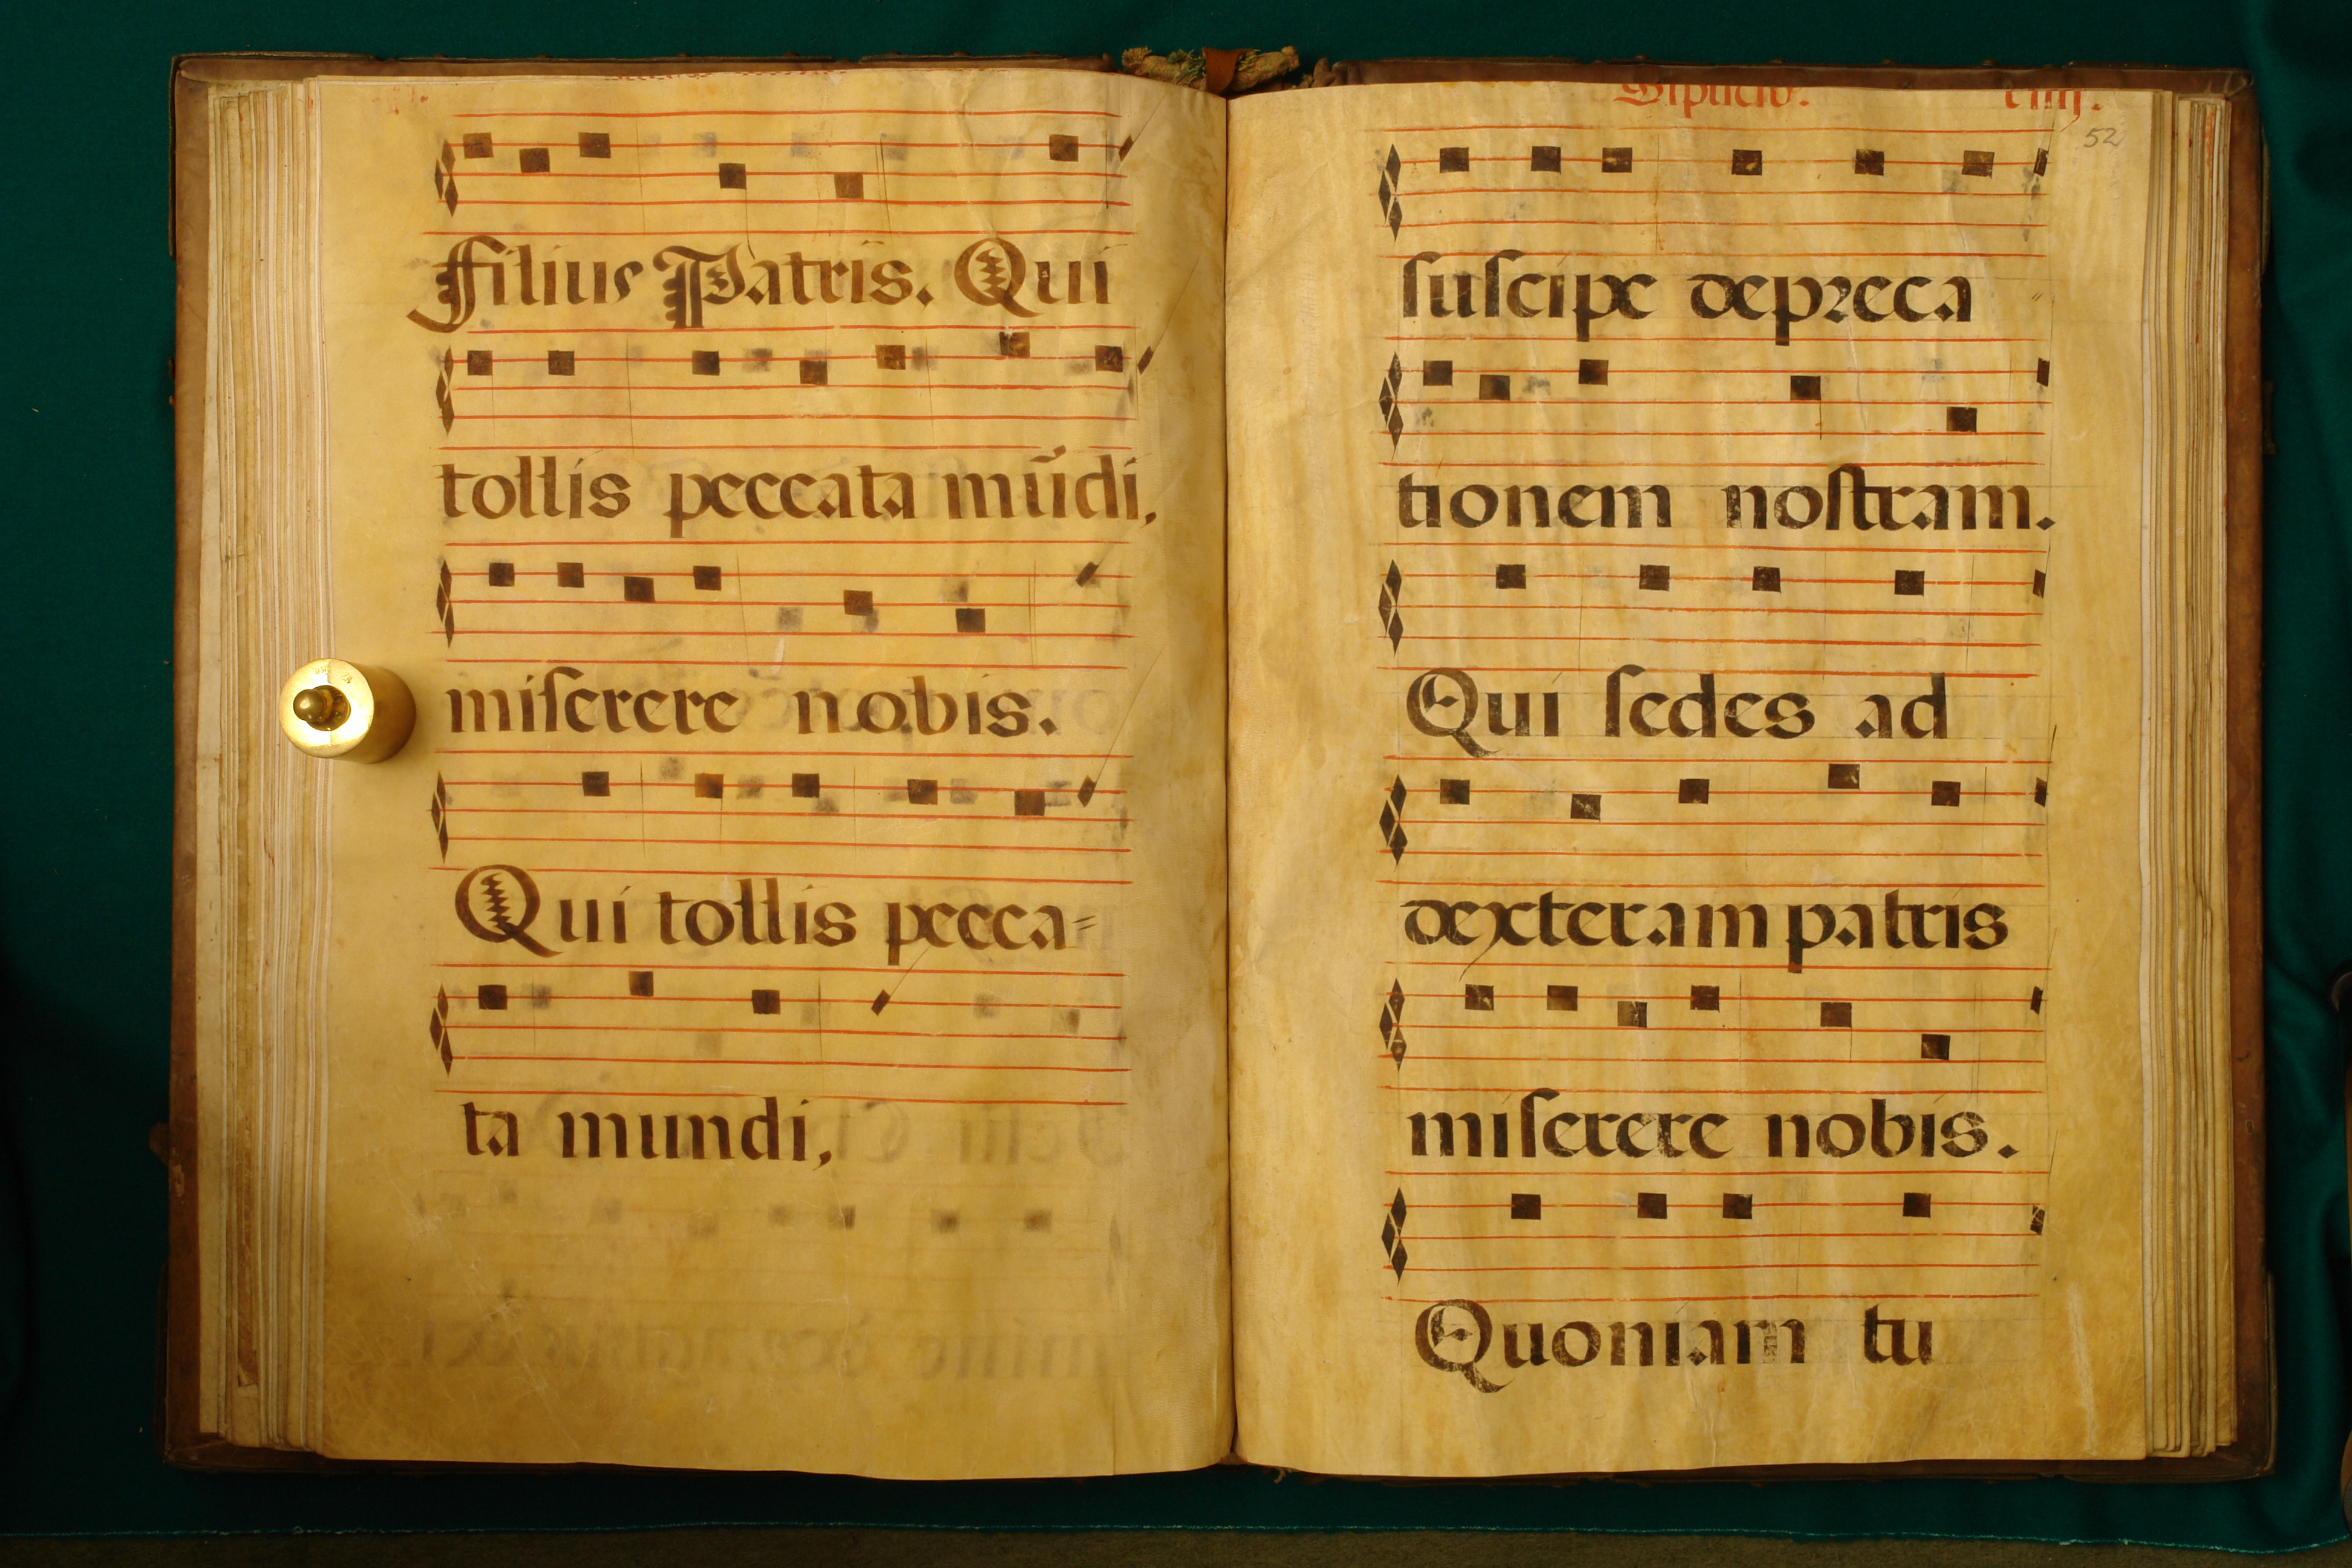 filius Patris. Qui
tollis peccata mũdi,
miſerere nobis.
Qui tollis pecca=
ta mundi,
52
ſuſcipe depreca
tionem noſtram.
Qui ſedes ad
dexteram patris
miſerere nobis.
Quoniam tu